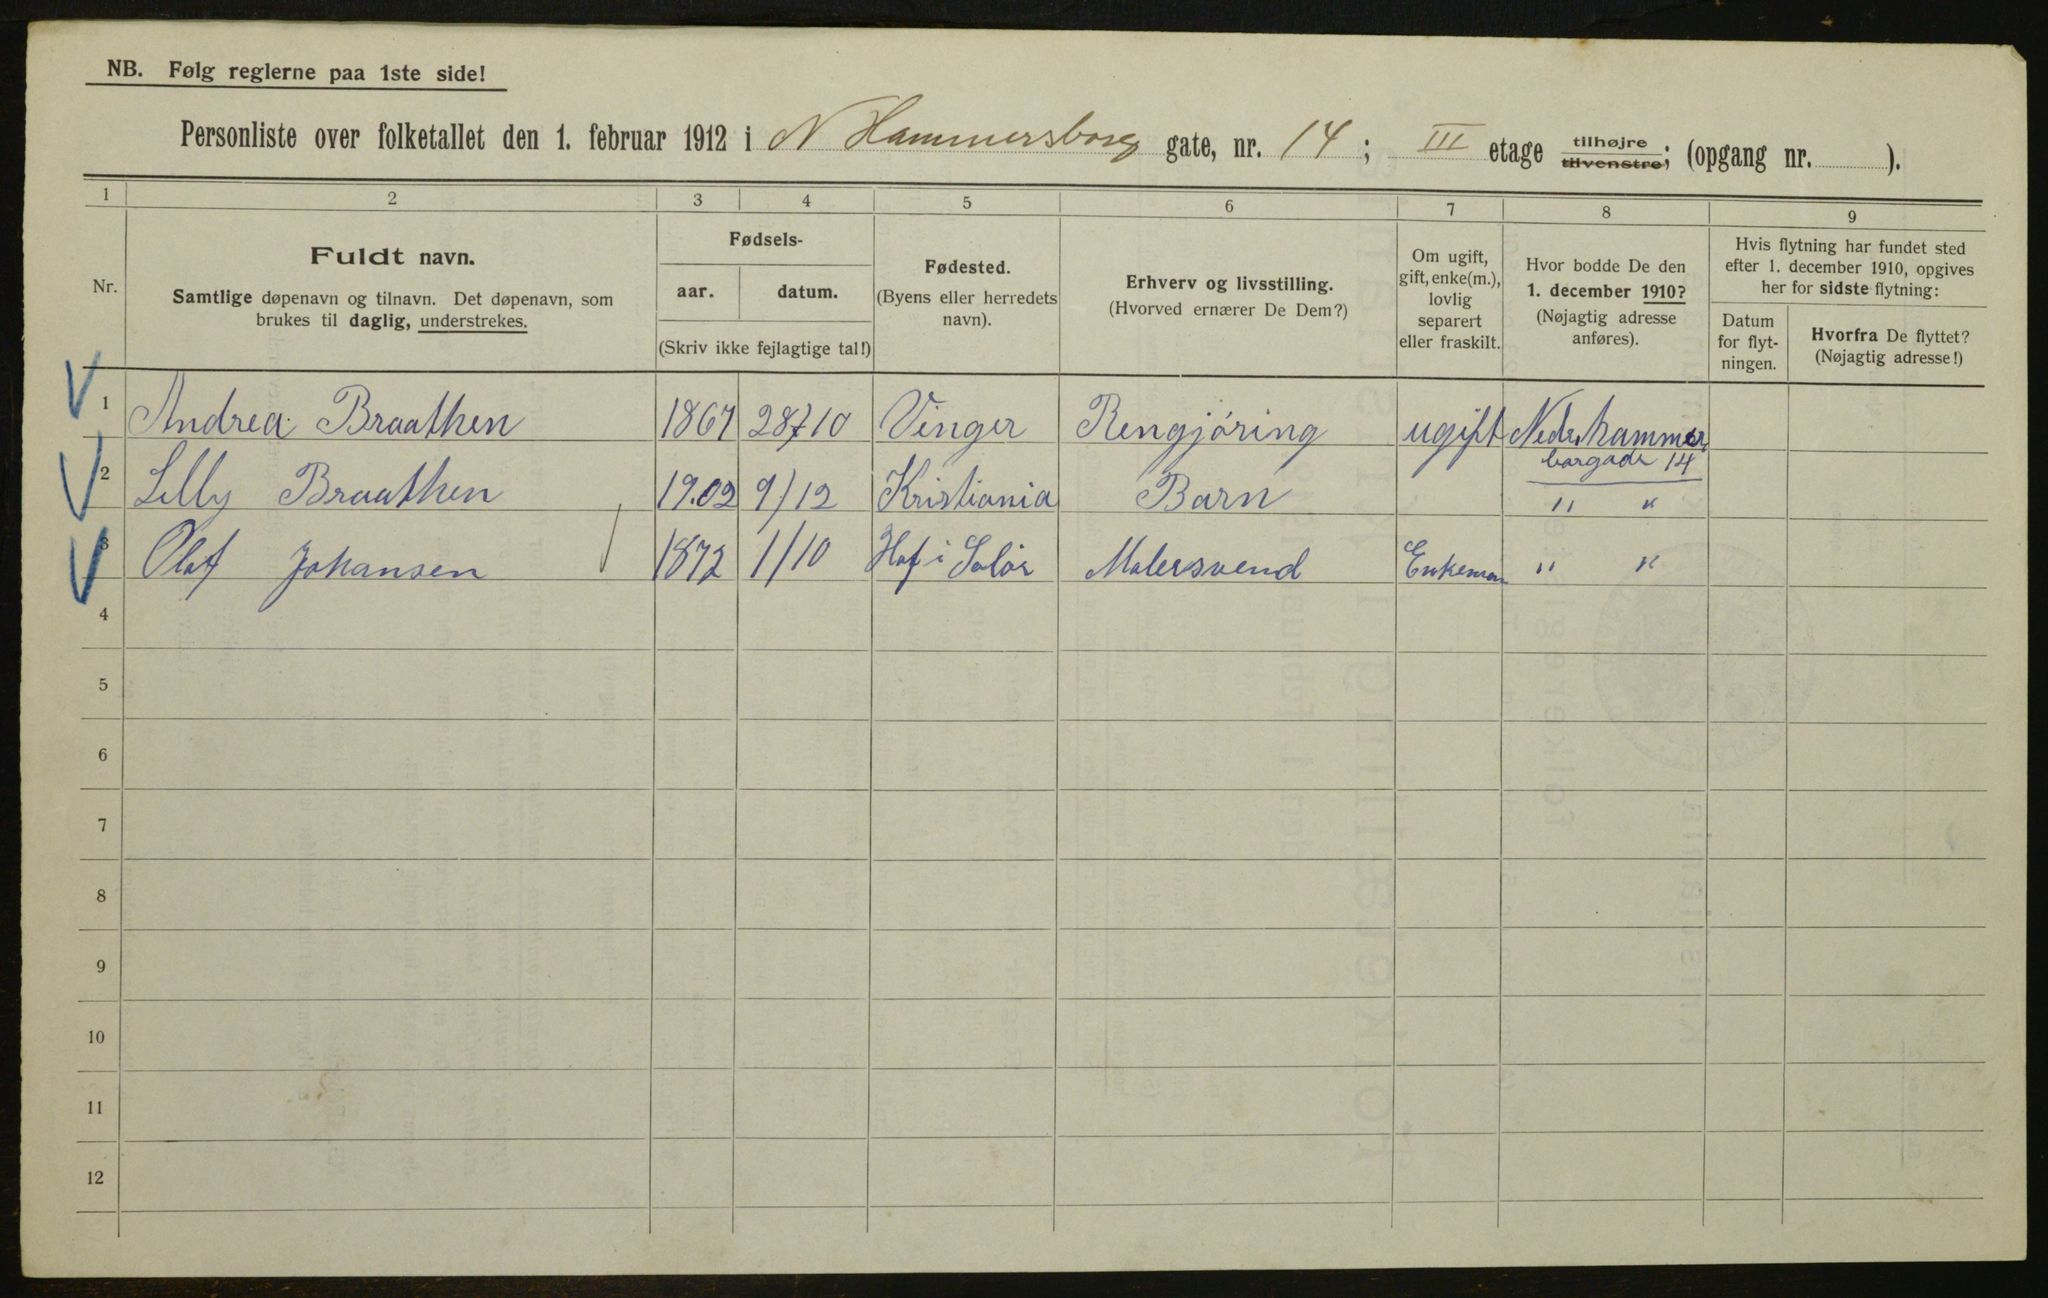 NB. Følg reglerne paa 1ste side!
Personliste over folketallet den 1. februar 1912 i N Hammersborg gate, nr. 14; III etage tilhøjre tilvenstre; (opgang nr. ).
1 2 3 4 5 6 7 8 9
Nr.
Fuldt navn.
Samtlige døpenavn og tilnavn. Det døpenavn, som
brukes til daglig, understrekes.
Fødsels-
aar. datum.
(Skriv ikke fejlagtige tal!)
Fødested.
(Byens eller herredets
navn).
Erhverv og livsstilling.
(Hvorved ernærer De Dem?)
Om ugift,
gift, enke(m.),
lovlig
separert
eller fraskilt.
Hvor bodde De den
1. december 1910?
(Nøjagtig adresse
anføres).
Hvis flytning har fundet sted
efter 1. december 1910, opgives
her for sidste flytning:
Datum
for flyt-
ningen.
Hvorfra De flyttet?
(Nøjagtig adresse!)
1 Andrea Braathen 1867 28/10 Vinger Rengjöring ugift Nedrehammers
borgade 14
2 Lilly Braathen 1902 9/12 Kristiania Barn " "
3 Olaf Johansen 1872 1/10 Hof i Solör Malersvend Enkeman " "
4
5
6
7
8
9
10
11
12